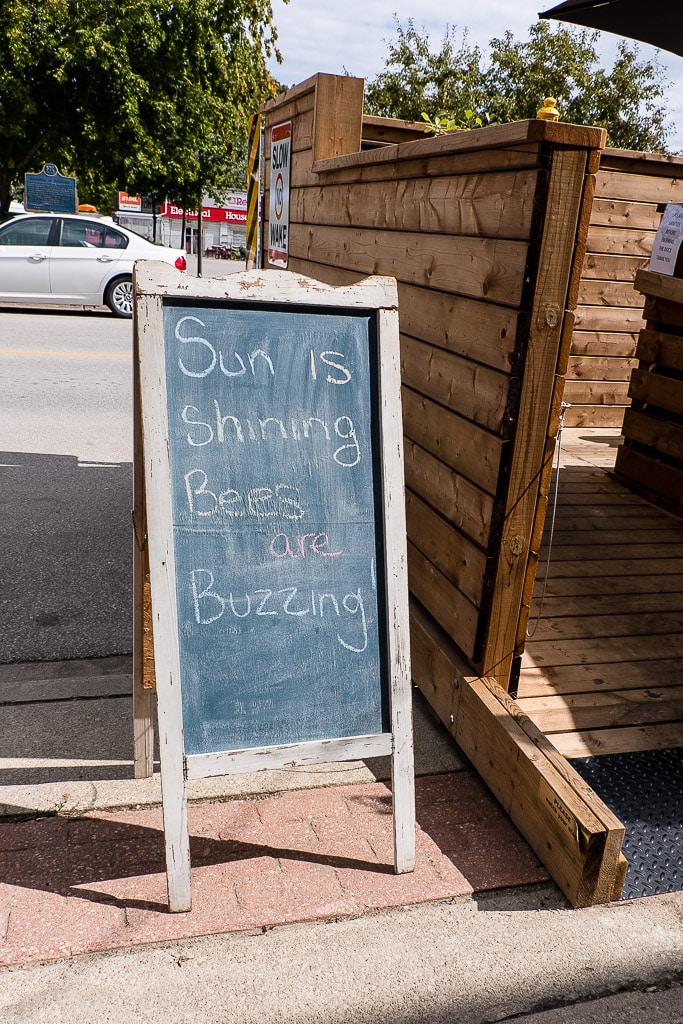 Sun is
shining
Bees
are
Buzzing!
SLOW
WAKE
STIHL
Electrical
House